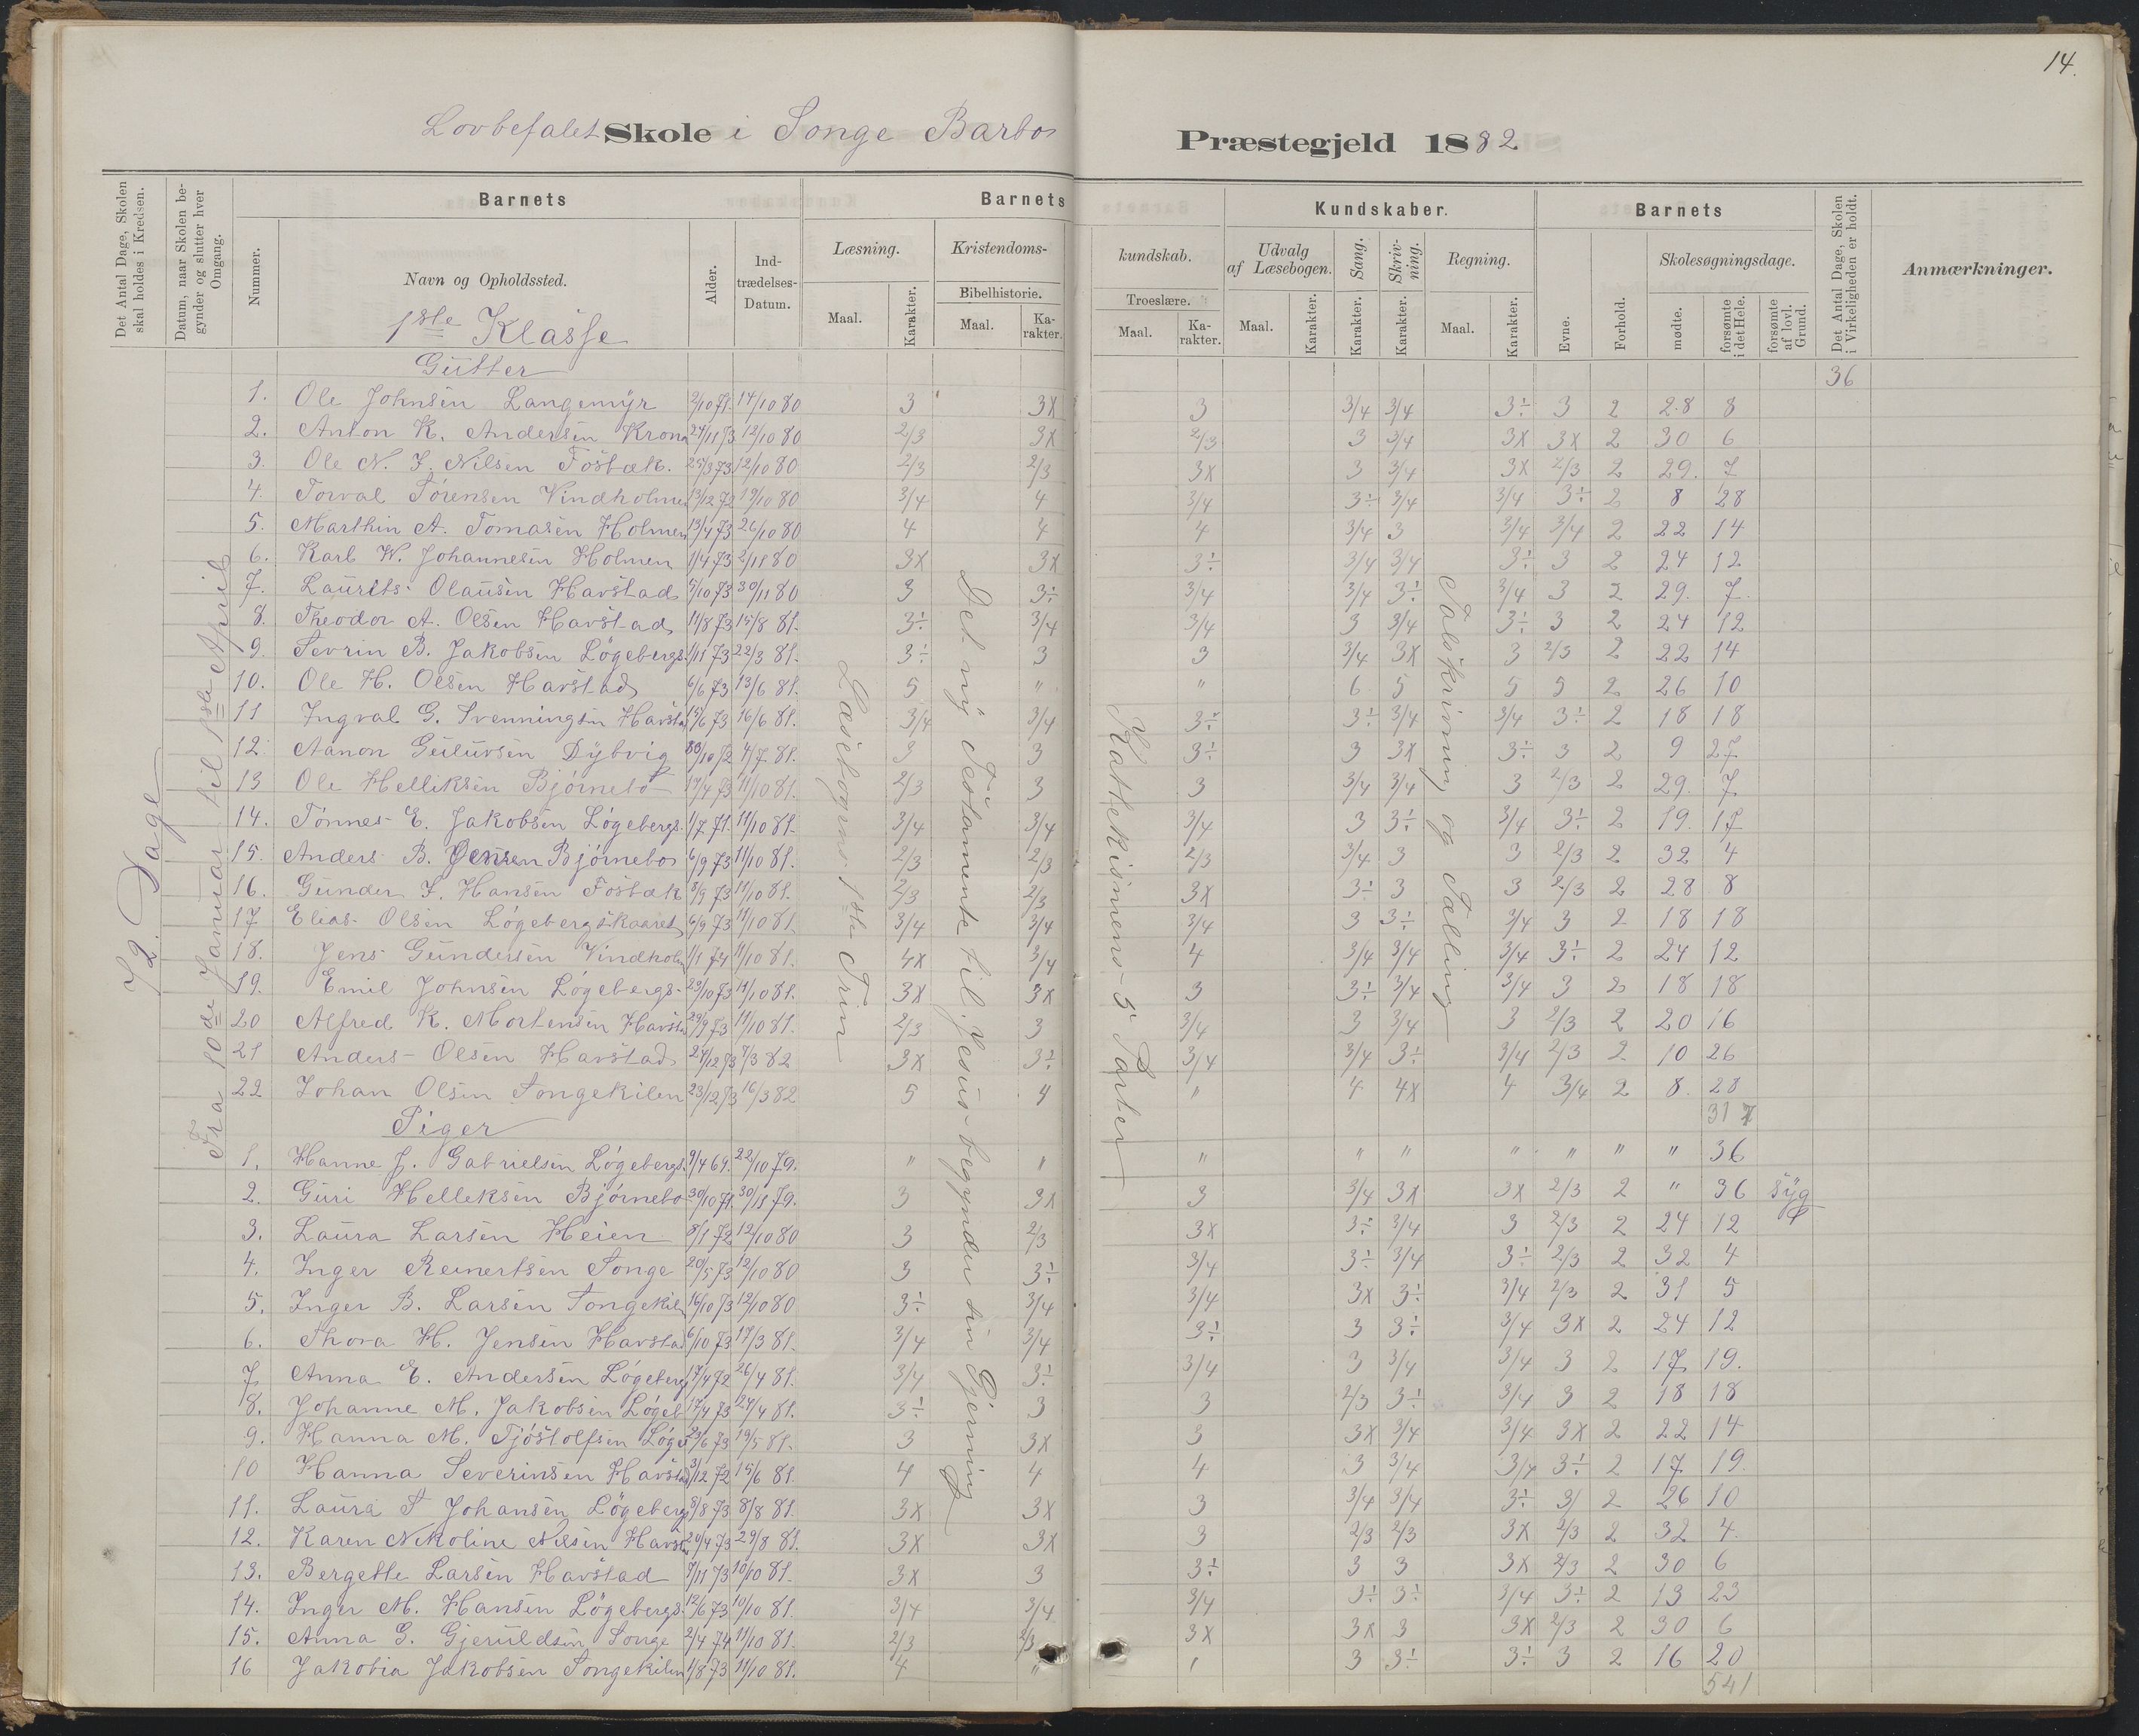 14.
Lovbefalet Skole i Songe Barbo Præstegjeld 1882
Det Antal Dage, Skolen skal holdes i Kredsen.
Datum, naar Skolen begynder og slutter hver Omgang.
Barnets
Nummer.
Navn og Opholdssted.
Alder.
Indtrædelses-Datum.
Barnets
Læsning.
Maal.
Karakter.
Kristendoms-
Bibelhistorie.
Maal.
Karakter.
kundskab.
Troeslære.
Maal.
Karakter.
Kundskaber.
Udvalg af Læsebogen.
Maal.
Karakter.
Sang.
Karakter.
Skrivning.
Karakter.
Regning.
Maal.
Karakter.
Barnets
Evne.
Forhold.
Skolesøgningsdage.
mødte.
forsømte i det Hele.
forsømte af lovl. Grund.
Det Antal Dage, Skolen i Virkeligheden er holdt.
Anmærkninger.
72 Dage
Fra 10de Januar til 1ste April
Læsebogens 1ste Trin
Det ny Testamente til Jesus begynder sin Gjerning
Kathekismens 5 Parter
Talskrivning og Tælling
1ste Klasse
Gutter
36
1. Ole Johnsen Langemyr 2/10 71. 14/10 80 3 3x 3 3/4 3/4 3÷ 3 2 28 8
2. Anton K. Andersen Krona 24/11 73 12/10 80 2/3 3x 2/3 3 3/4 3x 3x 2 30 6
3. Ole N. J. Nilsen Fosbæk. 25/3 73 12/10 80 2/3 2/3 3x 3 3/4 3x 2/3 2 29. 7
4. Torval Sørensen Vindholmen 13/12 72 19/10 80 3/4 4 3/4 3÷ 3/4 3/4 3÷ 2 8 28
5. Marthin A. Tomasen Holmen 13/4 73 26/10 80 4 4 4 3/4 3 3/4 3/4 2 22 14
6. Karl W. Johannesen Holmen 1/4 73 2/11 80 3x 3x 3÷ 3/4 3/4 3÷ 3 2 24 12
7. Laurits Olausen Havstad 5/10 73 30/11 80 3 3÷ 3/4 3/4 3÷ 3/4 3 2 29. 7.
8. Theodor A. Olsen Havstad 11/8 73 15/8 81. 3÷ 3/4 3/4 3 3/4 3÷ 3 2 24 12
9. Sevrin B. Jakobsen Løgebergs. 1/11 73 22/3 81. 3÷ 3 3 3/4 3x 3 2/3 2 22 14
10. Ole H. Olsen Havstad 6/6 73 13/6 81. 5 " " 6 5 5 5 2 26 10
11 Ingval G. Svenningsen Havsta 15/6 73 16/6 81. 3/4 3/4 3÷ 3÷ 3/4 3/4 3÷ 2 18 18
12. Aanon Guluvsen Dybvig 30/10 72 4/7 81. 3 3 3÷ 3 3x 3÷ 3 2 9 27
13 Ole Helliksen Bjørnebo 17/4 73 11/10 81. 2/3 3 3 3/4 3/4 3 2/3 2 29. 7
14. Tønnes E. Jakobsen Løgebergs. 1/7 71. 11/10 81. 3/4 3/4 3/4 3 3÷ 3/4 3÷ 2 19. 17
15. Anders B. Jensen Bjørnebo 6/9 73 11/10 81. 2/3 2/3 2/3 3/4 3 3 2/3 2 32 4
16. Gunder J. Hansen Fosbæk 8/9 73 11/10 81. 2/3 2/3 3x 3÷ 3 3 2/3 2 28 8
17 Elias Olsen Løgebergskaaret 6/9 73 11/10 81. 3/4 3/4 3/4 3 3÷ 3/4 3 2 18 18
18. Jens Gundersen Vindholm 1/1 74 11/10 81. 4x 3/4 4 3/4 3/4 3/4 3÷ 2 24 12
19. Emil Johnsen Løgebergs- 29/10 73 11/10 81. 3x 3x 3 3÷ 3/4 3/4 3 2 18 18
20 Alfred K. Mortensen Havsta 29/9 73 11/10 81. 2/3 3 3/4 3 3/4 3 2/3 2 20 16
21 Anders Olsen Havstad 27/12 73 7/3 82 3x 3÷ 3/4 3/4 3÷ 3/4 2/3 2 10 26
22 Johan Olsen Songekilen 23/12 73 16/3 82 5 4 " 4 4x 4 3/4 2 8. 28
317
Piger
1. Hanne J. Gabrielsen Løgebergs. 9/4 69. 22/10 79. " " " " " " " " " 36
2. Guri Helleksen Bjørnebo 30/10 71. 30/11 79. 3 3x 3 3/4 3x 3x 2/3 2 " 36 syg
3. Laura Larsen Heien 8/1 72 12/10 80 3 2/3 3x 3÷ 3/4 3 2/3 2 24 12
4. Inger Reinertsen Songe 20/5 73 12/10 80 3 3÷ 3/4 3÷ 3/4 3÷ 2/3 2 32 4
5. Inger B. Larsen Songekil 16/10 73 12/10 80 3÷ 3/4 3/4 3x 3÷ 3/4 2/3 2 31 5
6. Thora H. Jensen Havstad 6/10 73 17/3 81. 3/4 3/4 3÷ 3 3÷ 3/4 3x 2 24 12
7 Anna E. Andersen Løgeberg 17/4 72 26/4 81. 3/4 3÷ 3/4 3 3/4 3/4 3 2 17 19.
8. Johanne M. Jakobsen Løgeb 17/4 73 27/4 81. 3÷ 3 3 2/3 3÷ 3/4 3 2 18 18
9. Hanna M. Tjøstolfsen Løge 23/6 73 19/5 81. 3 3x 3 3x 3/4 3/4 3x 2 22 14
10 Hanna Severinsen Havstad 3/12 72 15/6 81. 4 4 4 3 3/4 3/4 3÷ 2 17 19.
11. Laura S Johansen Løgeberg 8/8 73 8/8 81. 3x 3x 3 3/4 3/4 3÷ 3/ 2 26 10
12. Karen Nikoline Nilsen Havsta 20/4 73 29/8 81. 3x 3x 3 2/3 2/3 3x 2/3 2 32 4.
13. Bergette Larsen Havstad 7/11 73 10/10 81. 3x 3 3÷ 3 3 3x 2/3 2 30 6
14. Inger M. Hansen Løgebergs. 12/6 73 10/10 81. 3/4 3/4 3/4 3÷ 3÷ 3/4 3÷ 2 13 23
15. Anna G. Gjeruldsen Songe 2/4 74 11/10 81. 2/3 2/3 3x 3x 3 3x 2/3 2 30 6
16 Jakobia Jakobsen Songekilen 1/8 73 11/10 81. 4 " 1 3 3÷ 3÷ 3 2 16 20
541